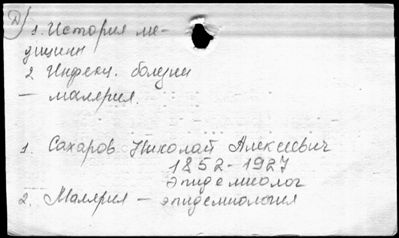 Д) 1. История ме-
дицины
2 Инфекц. болезни
— малярия.
1. Сахаров Николай Алексеевич
1852-1927
эпидемиолог
2. Малярия — эпидемиология